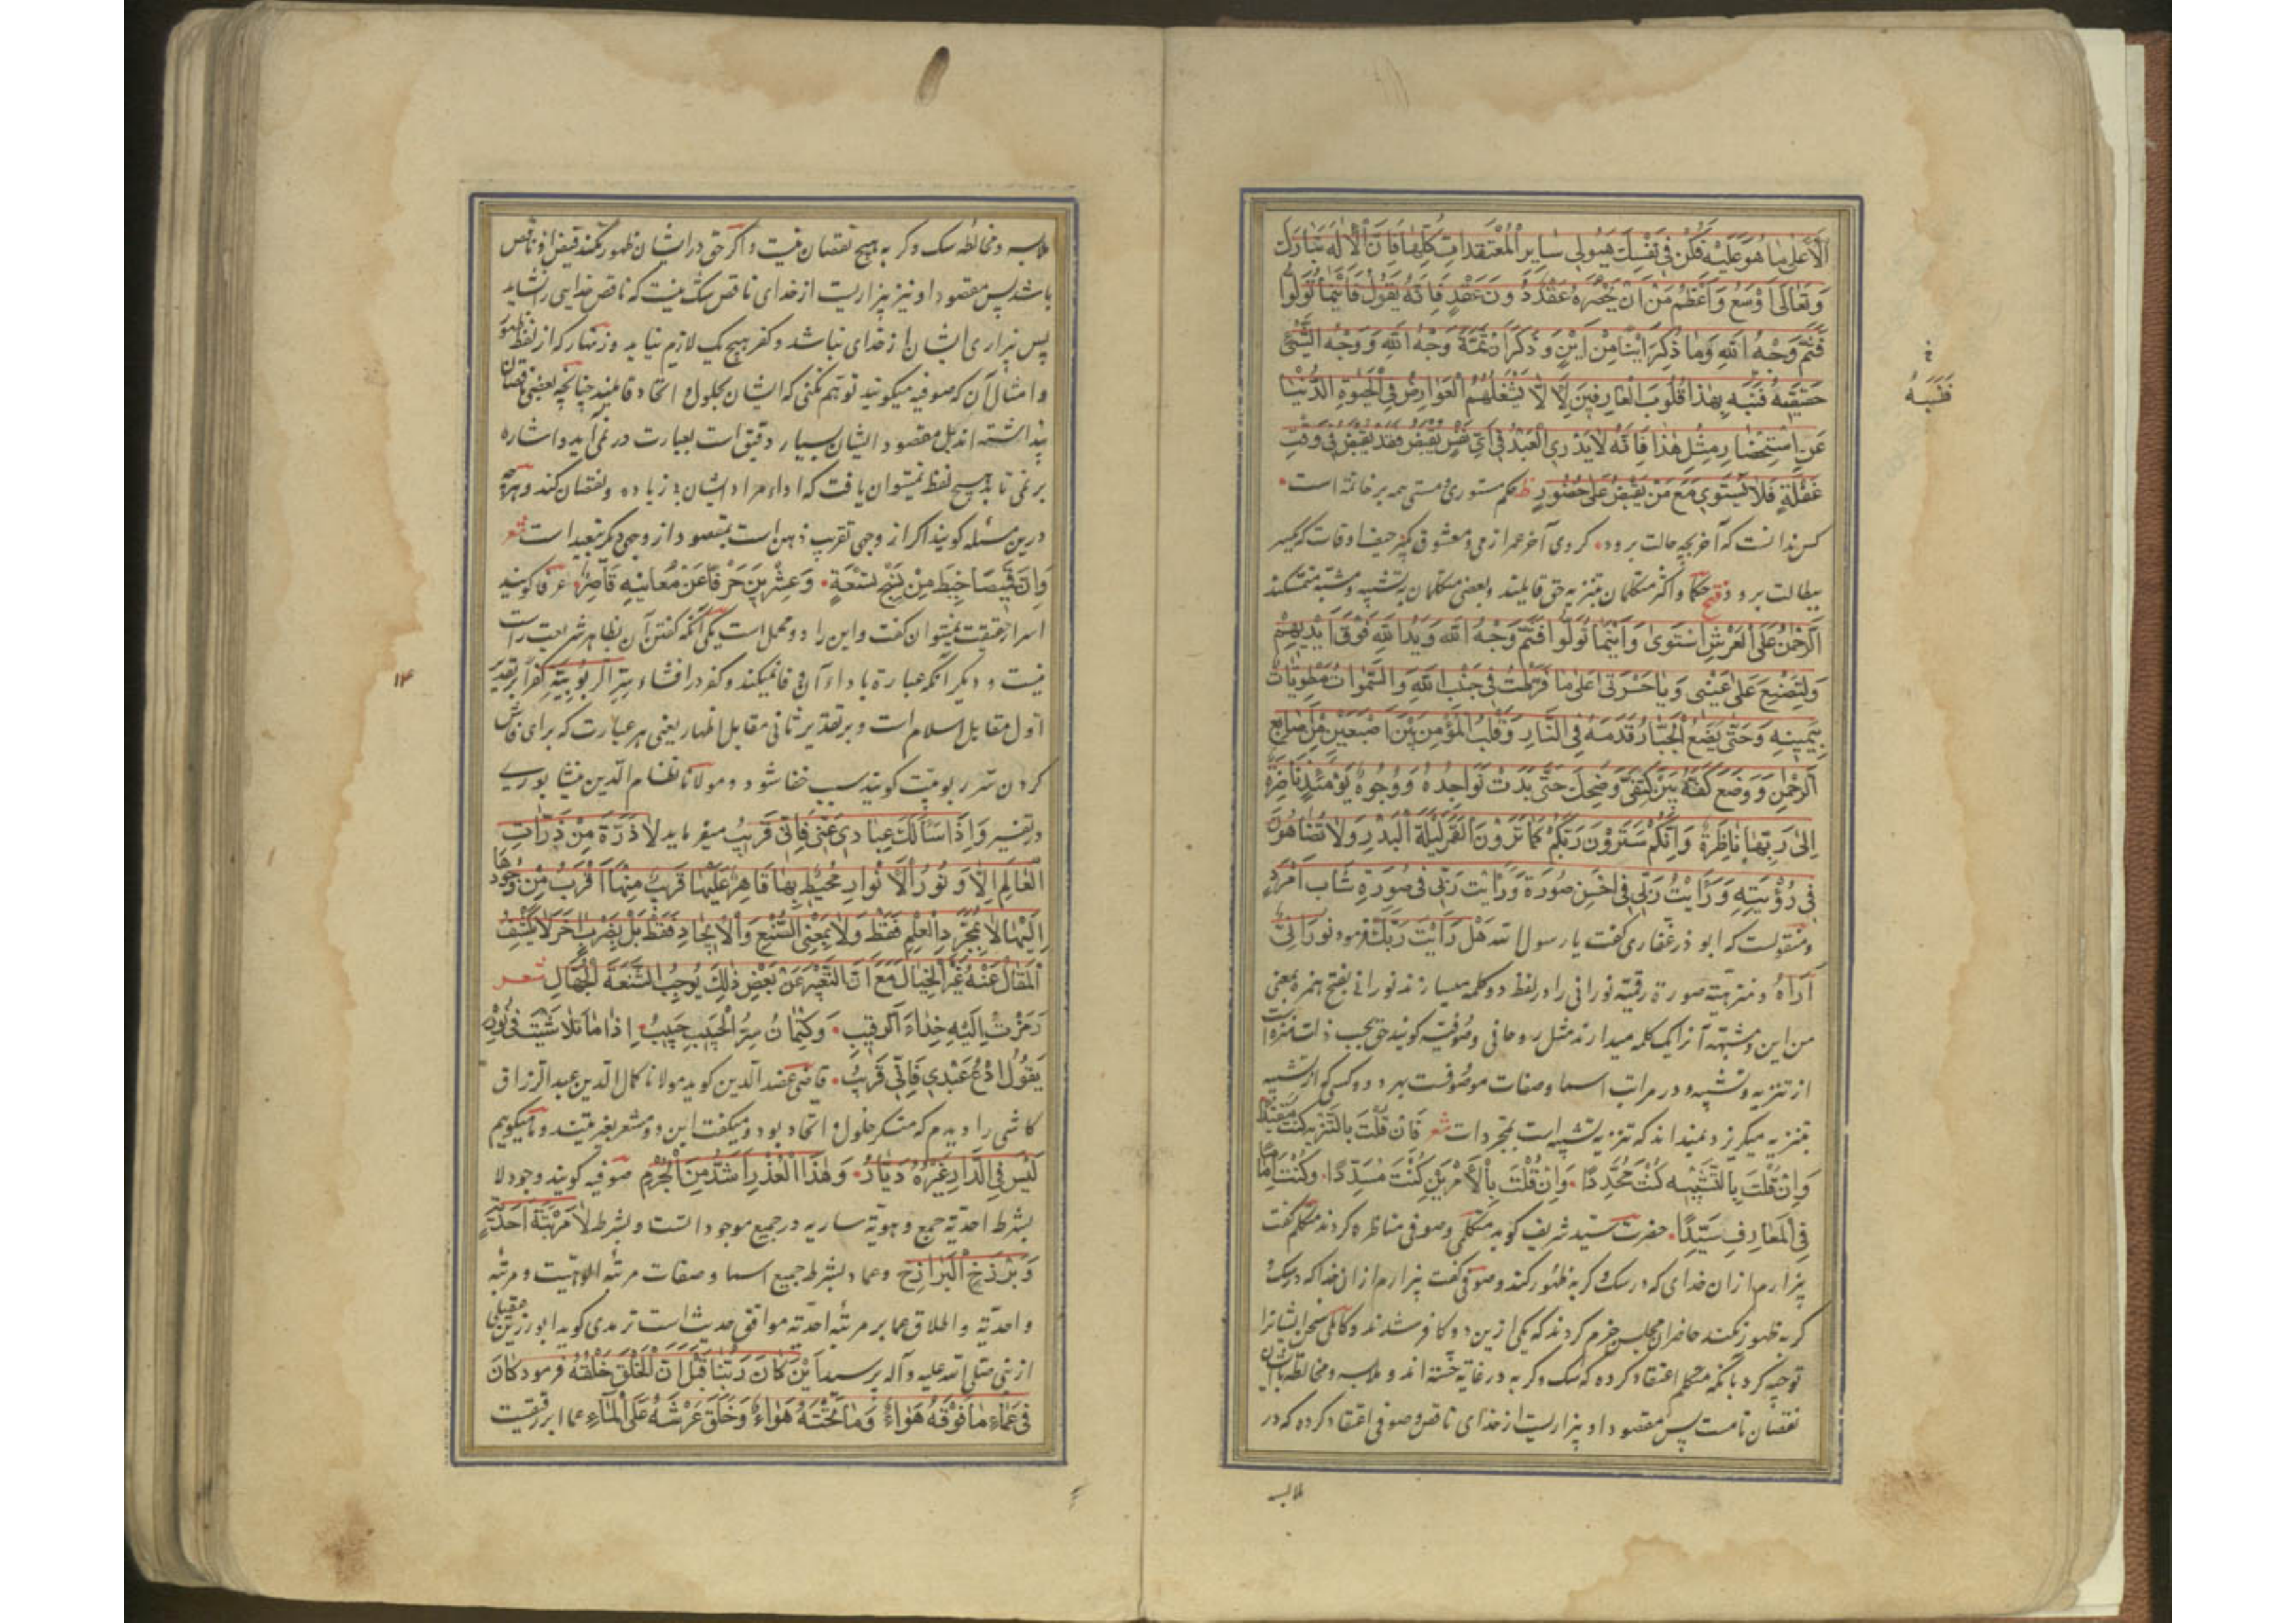 اَلْاَعْلٰی مَا هُوَ عَلَیْهِ فَکُنْ فِی نَفْسِكَ هَیُولٰی سَایِرِ الْمُعْتَقَدَاتِ کُلِّهَا فَاِنَّ الْاِلٰهَ تَبَارَكَ
وَ تَعَالٰی اَوْسَعُ وَ اَعْظَمُ مِنْ اَنْ یَحْصُرَهُ عَقْدٌ دُونَ عَقْدٍ فَاِنَّهُ یَقُولُ فَاَیْنَمَا تُوَلُّوا
فَثَمَّ وَجْهُ اللهِ وَمَا ذَکَرَ اَیْنًا مِنْ اَیْنٍ وَ ذَکَرَ اَنَّ ثَمَّةَ وَجْهُ اللهِ وَ وَجْهُ الشَّیْءِ
حَقِیقَتُهُ فَنَبَّهَ بِهٰذَا قُلُوبَ الْعَارِفِینَ لِاَلَّا یَشْغَلَهُمُ الْعَوَارِضُ فِی الْحَیٰوةِ الدُّنْیَا
فَنَبَّهَ
عَنِ اسْتِحْضَارِ مِثْلِ هٰذَا فَاِنَّهُ لَا یَدْرِی الْعَبْدُ فِی اَیِّ نَفَسٍ یُقْبَضُ فَقَدْ یُقْبَضُ فِی وَقْتِ
غَفْلَةٍ فَلَا یَسْتَوِی مَعَ مَنْ یُقْبَضُ عَلٰی حُضُورٍ حکم مستوری و مستی همه بر خاتمة است
کس ندانست که آخر بچه حالت برود کر دی آخر عمر از می و معشوق بکیر حیف اوقات که یکسر
ببطالت برود فتح حکما و اکثر متکلمان بتنزیه حق قایلند و بعضی متکلمان به تشبیه و مشبّه متمسکند
اَلرَّحْمٰنُ عَلَی الْعَرْشِ اسْتَوٰی وَ اَیْنَمَا تُوَلُّوا فَثَمَّ وَجْهُ اللهِ وَ یَدُ اللهِ فَوْقَ اَیْدِیهِمْ
وَ لِتُصْنَعَ عَلٰی عَیْنِی وَ یَا حَسْرَتٰی عَلٰی مَا فَرَّطْتُ فِی جَنْبِ اللهِ وَ السَّمٰوَاتُ مَطْوِیَّاتٌ
بِیَمِینِهِ وَ حَتّٰی یَضَعَ الْجَبَّارُ قَدَمَهُ فِی النَّارِ وَ قَلْبُ الْمُؤْمِنِ بَیْنَ اِصْبَعَیْنِ مِنْ اَصَابِعِ
الرَّحْمٰنِ وَ وَضَعَ کَفَّهُ بَیْنَ کَتِفَیَّ وَ ضَحِكَ حَتّٰی بَدَتْ نَوَاجِدُهُ وَ وُجُوهٌ یَوْمَئِذٍ نَاضِرَةٌ
اِلٰی رَبِّهَا نَاظِرَةٌ وَ اِنَّکُمْ سَتَرَوْنَ رَبَّکُمْ کَمَا تَرَوْنَ الْقَمَرَ لَیْلَةَ الْبَدْرِ وَ لَا تُضَاهُونَ
فِی رُؤْیَتِهِ وَ رَاَیْتُ رَبِّی فِی اَحْسَنِ صُورَةٍ وَ رَاَیْتُ رَبِّی فِی صُورَةِ شَابٍّ اَمْرَدَ
و منقولست که ابوذر غفاری گفت یا رسول الله هَلْ رَاَیْتَ رَبَّكَ فرمود نُورٌ اَنّٰی
اَرَاهُ و منزهیّه صورة رقمیّه نورانی را در لفظ دو کلمه میسازند نور انی بفتح همزه بمعنی
من این و مشبّهه آنرا یک کلمه میدارند مثل روحانی و صوفیه گویند حق بحسب ذات منزه است
از تنزیه و تشبیه و در مراتب اسما و صفات موصوفست بهر دو و کسی که از تشبیه
بتنزیه میگریزد نمیداند که تنزیه تشبیه است بمجردات شعر فَاِنْ قُلْتَ بِالتَّنْزِیهِ کُنْتَ مُقَیِّدًا
وَ اِنْ قُلْتَ بِالتَّشْبِیهِ کُنْتَ مُحَدِّدًا وَ اِنْ قُلْتَ بِالْاَمْرَیْنِ کُنْتَ مُسَدِّدًا وَ کُنْتَ اِمَامًا
فِی الْمَعَارِفِ سَیِّدًا حضرت سید شریف گوید متکلمی و صوفی مناظره کردند متکلم گفت
بیزارم از ان خدای که در سک و کربه ظهور کند و صوفی گفت بیزارم از ان خدا که در سک و
کربه ظهور نکند حاضران مجلس جزم کردند که یکی ازین دو کافر شدند و کاملی سخن ایشانرا
توجیه کرد بانکه متکلم اعتقاد کرده که سک و کربه در غایة خسّت اند و ملابسه و مخالطه با ایشان
نقصان تامست پس مقصود او بیزاریست از خدای ناقص و صوفی اعتقاد کرده که در
ملابسه
ملابسه و مخالطه سک و کربه هیچ نقصان نیست و اگر حق در ایشان ظهور نکند فیض او ناقص
باشد پس مقصود او نیز بیزاریست از خدای ناقص و شک نیست که ناقص خدایی را نشاید
پس بیزاری ایشان از خدای نباشد و کفر هیچ یک لازم نیاید و زنهار که از لفظ ظهور
و امثال آن که صوفیه میکویند توهم نکنی که ایشان بحلول و اتحاد قایلند چنانچه بعضی ناقصان
پنداشته اند بل مقصود ایشان بسیار دقیق است بعبارت در نمی آید و اشاره
بر نمی تابد هیچ لفظ نمیتوان یافت که اداء مراد ایشان بی زیاده و نقصان کند و هرچه
درین مسئله کویند اکر از وجهی تقریب ذهن است بمقصود از وجهی دیکر تبعید است شعر
وَ اِنَّ قَمِیصًا خِیطَ مِنْ نَسْجِ تِسْعَةٍ وَ عِشْرِینَ حَرْفًا عَنْ مَعَانِیهِ قَاصِرٌ عرفا کویند
اسرار حقیقت نمیتوان کفت و این را دو محمل است یکی آنکه کفتن آن بظاهر شریعت راست
نیست و دیکر آنکه عبارة باداء آن وفا نمیکند و کفر در افشاء سِرِّ الرُّبُوبِیَّةِ کُفْرٌ بر تقدیر
۱۴
اول مقابل اسلام است و بر تقدیر ثانی مقابل اظهار یعنی هر عبارت که برای فاش
کردن سرّ ربوبیّت کویند سبب خفا شود و مولانا نظام الدین نیشابوری
در تفسیر وَ اِذَا سَاَلَكَ عِبَادِی عَنِّی فَاِنِّی قَرِیبٌ میفرماید لَا ذَرَّةَ مِنْ ذَرَّاتِ
الْعَالَمِ اِلَّا وَ نُورُ الْاَنْوَارِ مُحِیطٌ بِهَا قَاهِرٌ عَلَیْهَا قَرِیبٌ مِنْهَا اَقْرَبُ مِنْ وُجُودِهَا
اِلَیْهَا لَا بِمُجَرَّدِ الْعِلْمِ فَقَطْ وَ لَا بِمَعْنَی الصُّنْعِ وَ الْاِیجَادِ فَقَطْ بَلْ بِضَرْبٍ اٰخَرَ لَا یَکْشِفُ
الْمَقَالُ عَنْهُ غَیْرَ الْخَیَالِ مَعَ اَنَّ التَّعْبِیرَ عَنْ بَعْضِ ذٰلِكَ یُوجِبُ شُنْعَةَ الْجُهَّالِ شعر
رَمَزْتُ اِلَیْهِ حِذَاءَ الرَّقِیبِ وَ کِتْمَانُ سِرِّ الْحَبِیبِ حَبِیبٌ اِذَا مَا تَلَاشَیْتُ فِی نُورِهِ
یَقُولُ ادْعُ عَبْدِی فَاِنِّی قَرِیبٌ قاضی عضد الدین کوید مولانا کمال الدین عبد الرزاق
کاشی را دیدم که منکر حلول و اتحاد بود و میکفت این دو مشعر بغیریتند و ما میکوییم
لَیْسَ فِی الدَّارِ غَیْرُهُ دَیَّارٌ وَ هٰذَا الْعُذْرُ اَشَدُّ مِنَ الْجُرْمِ صوفیه کویند وجود لا
بشرط احدیّة جمع و هویّة ساریه در جمیع موجوداتست و بشرط لا مرتبة احدیّة
وَ بَرْزَخِ الْبَرَازِخِ وعما و بشرط جمیع اسما و صفات مرتبه الوهیت و مرتبه
واحدیّة و اطلاق عما بر مرتبه احدیّه موافق حدیث است ترمدی کوید ابو رزین عقیلی
از نبی صلی الله علیه و آله پرسید اَیْنَ کَانَ رَبُّنَا قَبْلَ اَنْ الْخَلَقَ خَلْقَهُ فرمود کَانَ
فِی عَمَاءٍ مَا فَوْقَهُ هَوَاءٌ وَ مَا تَحْتَهُ هَوَاءٌ وَ خَلَقَ عَرْشَهُ عَلَی الْمَاءِ عما ابر رقیقیست